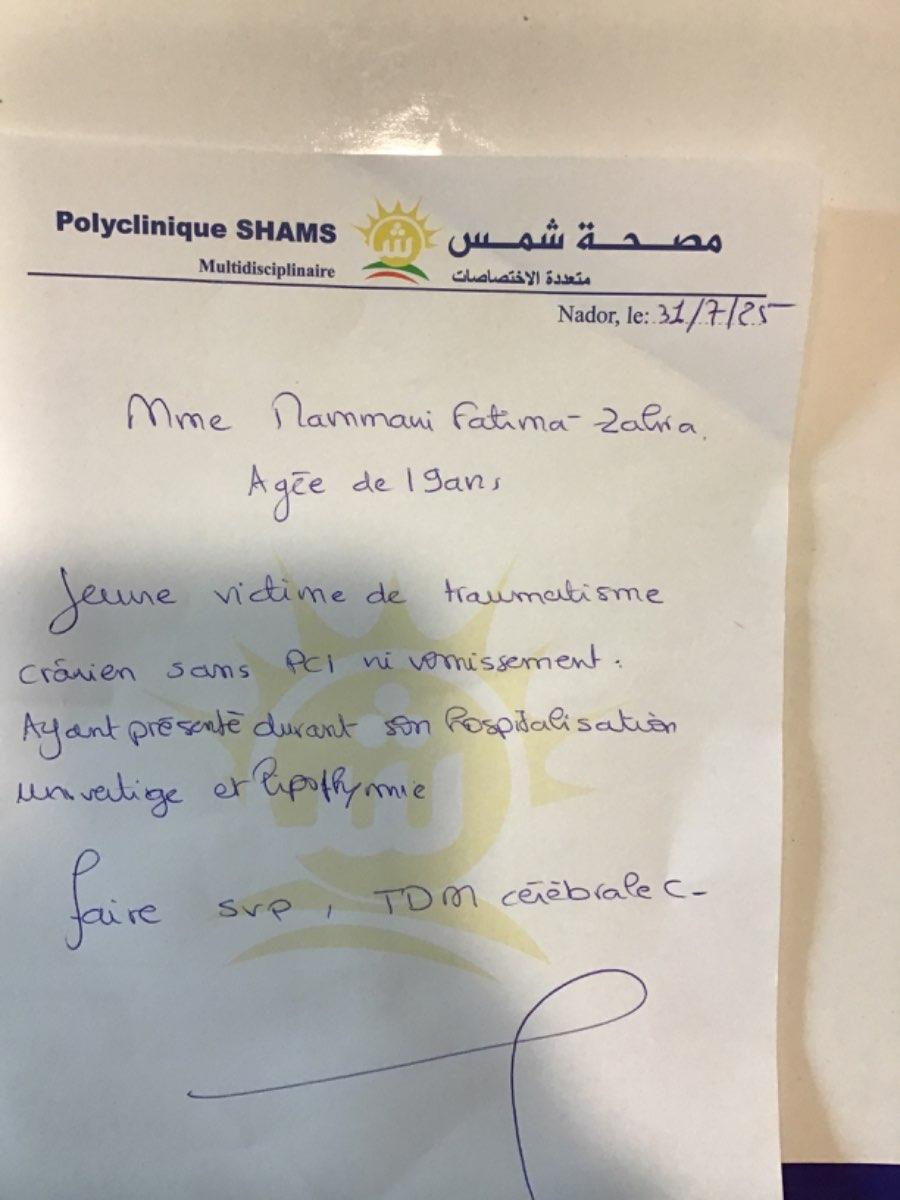 Polyclinique SHAMS
Multidisciplinaire
ش
مصحة شمس
متعددة الاختصاصات
Nador, le: 31/7/25
Mme Nammani Fatima-Zahra.
Agée de 19ans
Jeune victime de traumatisme
crânien sans PCI ni vomissement.
Ayant présenté durant son hospitalisation
un vertige et lipothymie
faire svp, TDM cérébrale C-